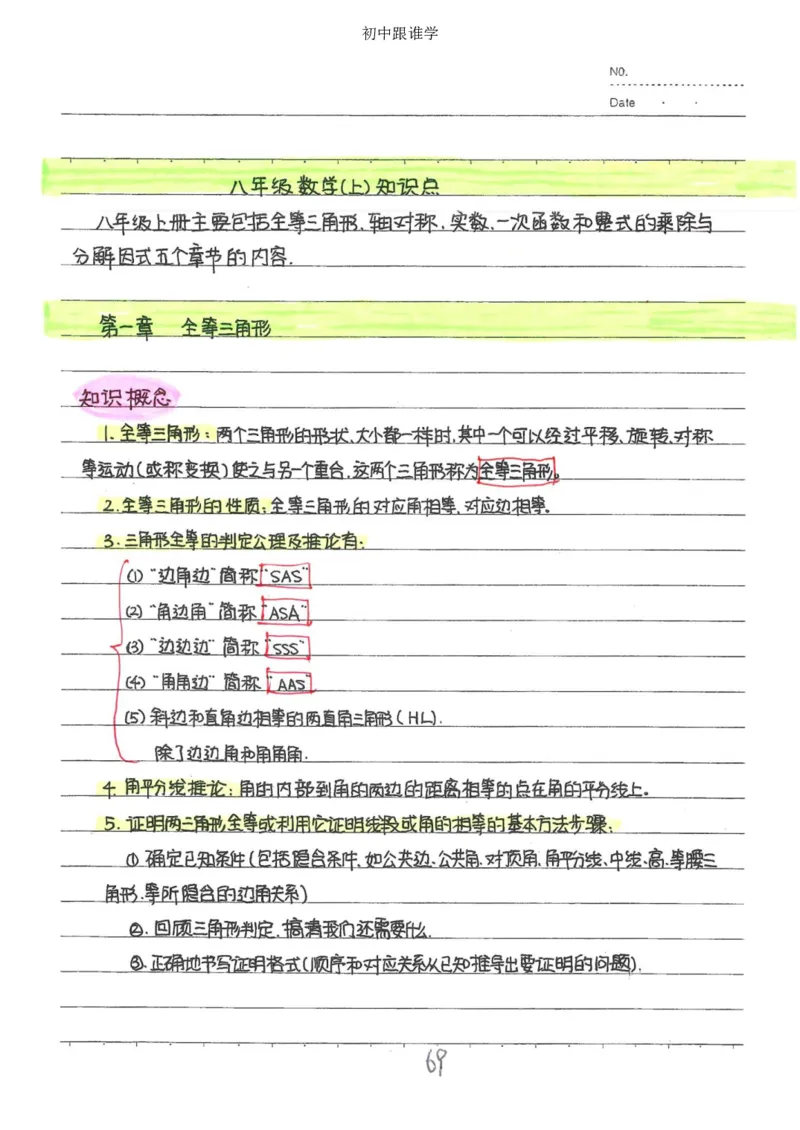 初中跟谁学
NO.
Date
八年级数学(上)知识点
八年级上册主要包括全等三角形、轴对称、实数、一次函数和整式的乘除与
分解因式五个章节的内容.
第一章 全等三角形
知识概念
1.全等三角形:两个三角形的形状、大小都一样时,其中一个可以经过平移、旋转、对称
等运动(或称变换)使之与另一个重合,这两个三角形称为全等三角形。
2.全等三角形的性质:全等三角形的对应角相等、对应边相等。
3.三角形全等的判定公理及推论有:
(1)“边角边”简称“SAS”
(2)“角边角”简称“ASA”
(3)“边边边”简称“SSS”
(4)“角角边”简称“AAS”
(5)斜边和直角边相等的两直角三角形(HL).
除了边边角和角角角.
4.角平分线推论:角的内部到角的两边的距离相等的点在角的平分线上。
5.证明两三角形全等或利用它证明线段或角的相等的基本方法步骤:
①确定已知条件(包括隐含条件,如公共边、公共角、对顶角、角平分线、中线、高、等腰三
角形、等所隐含的边角关系)
②.回顾三角形判定,搞清我们还需要什么.
③.正确地书写证明格式(顺序和对应关系从已知推导出要证明的问题).
69